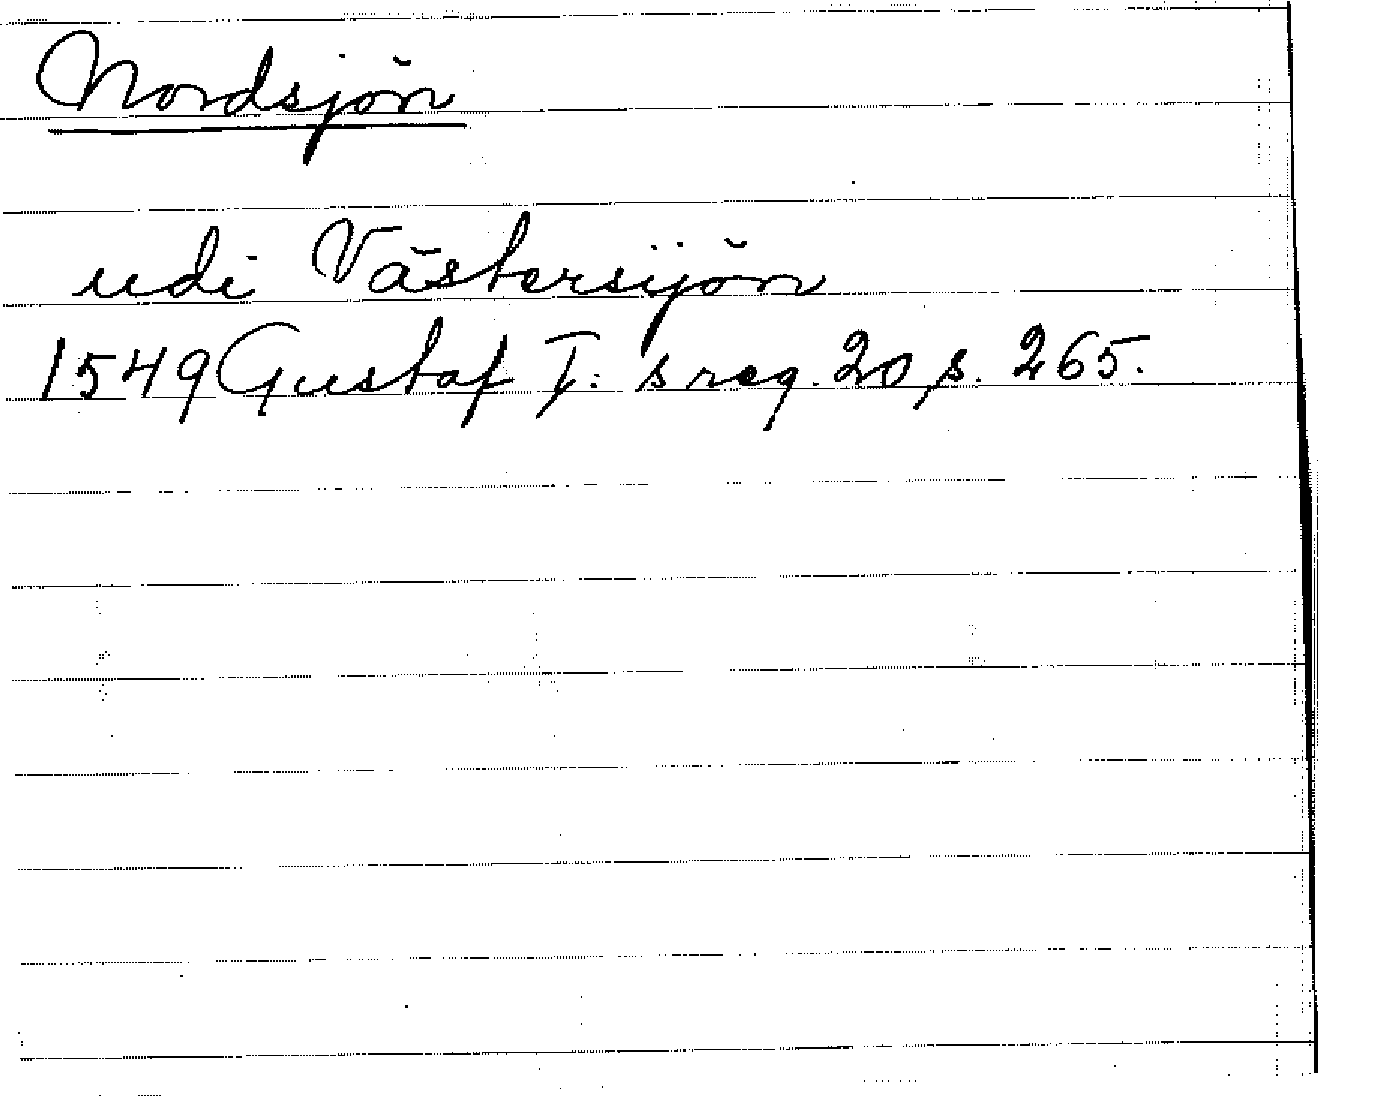 Nordsjön
udi Västersijön
1549 Gustaf I: s reg. 20 s. 265.